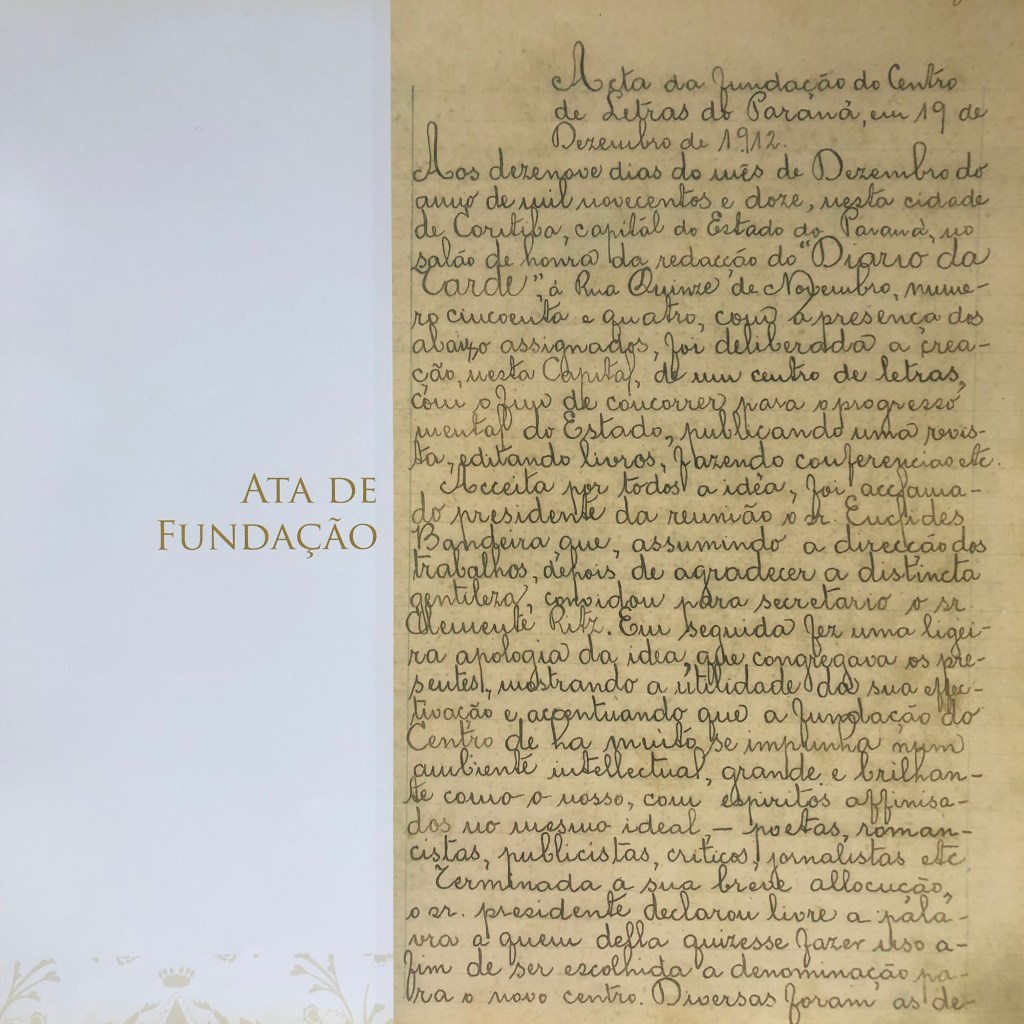 ATA DE
FUNDAÇÃO
Acta da fundação do Centro
de Letras do Paraná, em 19 de
Dezembro de 1912.
Aos dezenove dias do mês de Dezembro do
anno de mil novecentos e doze, nesta cidade
de Coritiba, capitál do Estado do Paraná, no
salão de honra da redacção do "Diario da
Tarde", á Rua Quinze de Novembro, nume-
ro cincoenta e quatro, com a presença dos
abaixo assignados, foi deliberada a crea-
ção, nesta Capital, de um centro de letras,
com o fim de concorrer para o progresso
mental do Estado, publicando uma revis-
ta, editando livros, fazendo conferencias etc.
Acceita por todos a idéa, foi acclama-
do presidente da reunião o sr. Euclides
Bandeira que, assumindo a direcção dos
trabalhos, depois de agradecer a distincta
gentileza, convidou para secretario o sr.
Clemente Ritz. Em seguida fez uma ligei-
ra apologia da idea, que congregava os pre-
sentes, mostrando a utilidade da sua effec-
tivação e accentuando que a fundação do
Centro de ha muito se impunha num
ambiente intellectual, grande e brilhan-
te como o nosso, com espiritos affinisa-
dos no mesmo ideal, — poetas, roman-
cistas, publicistas, criticos, jornalistas etc
Terminada a sua breve allocução,
o sr. presidente declarou livre a pala-
vra a quem della quizesse fazer uso a-
fim de ser escolhida a denominação pa-
ra o novo centro. Diversas foram as de-